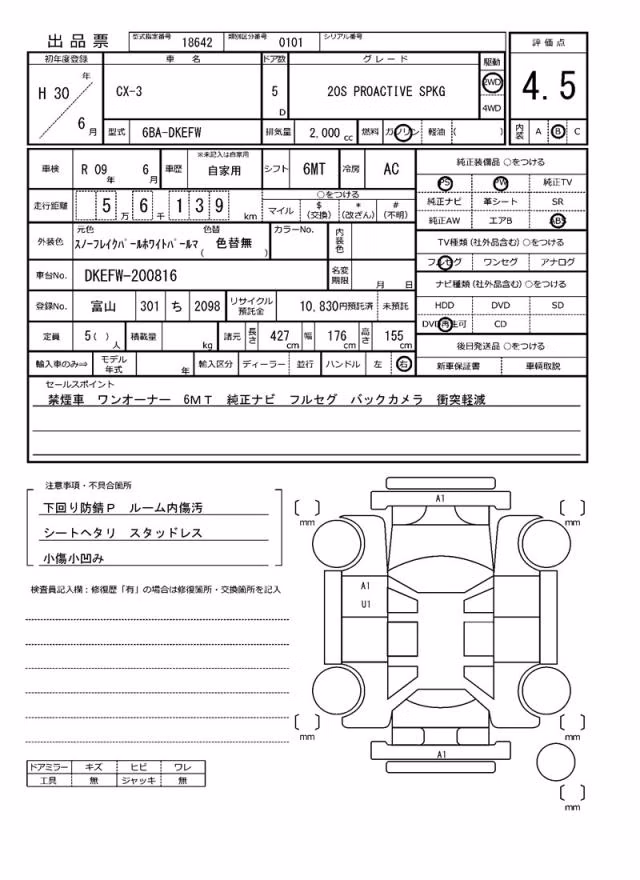 出品票 型式指定番号 18642 類別区分番号 0101 シリアル番号
評価点
4.5
内装 A B C
初年度登録 車名 ドア数 グレード 駆動
H 30 年 6 月 CX-3 5 D 20S PROACTIVE SPKG 2WD 4WD
型式 6BA-DKEFW 排気量 2,000 cc 燃料 ガソリン 軽油 ( )
車検 R 09 年 6 月 車歴 ※未記入は自家用 自家用 シフト 6MT 冷房 AC
走行距離 5 万 6 千 1 3 9 km ○をつける
マイル $ (交換) * (改ざん) # (不明)
外装色 元色 スノーフレイクパールホワイトパールマ 色替 ( 色替無 ) カラーNo. 内装色
車台No. DKEFW-200816 名変期限 月 日
登録No. 富山 301 ち 2098 リサイクル預託金 10,830円預託済 未預託
定員 5( )人 積載量 kg 諸元 長さ 427 cm 幅 176 cm 高さ 155 cm
輸入車のみ⇒ モデル年式 年 輸入区分 ディーラー 並行 ハンドル 左 右
純正装備品 ○をつける
PS PW 純正TV
純正ナビ 革シート SR
純正AW エアB ABS
TV種類 (社外品含む) ○をつける
フルセグ ワンセグ アナログ
ナビ種類 (社外品含む) ○をつける
HDD DVD SD
DVD再生可 CD
後日発送品 ○をつける
新車保証書 車輌取説
セールスポイント
禁煙車 ワンオーナー 6MT 純正ナビ フルセグ バックカメラ 衝突軽減
注意事項・不具合箇所
下回り防錆P ルーム内傷汚
シートヘタリ スタッドレス
小傷小凹み
検査員記入欄：修復歴「有」の場合は修復箇所・交換箇所を記入
ドアミラー キズ ヒビ ワレ
工具 無 ジャッキ 無
A1
[ ] mm [ ] mm
A1
U1
[ ] mm [ ] mm
A1
[ ] mm